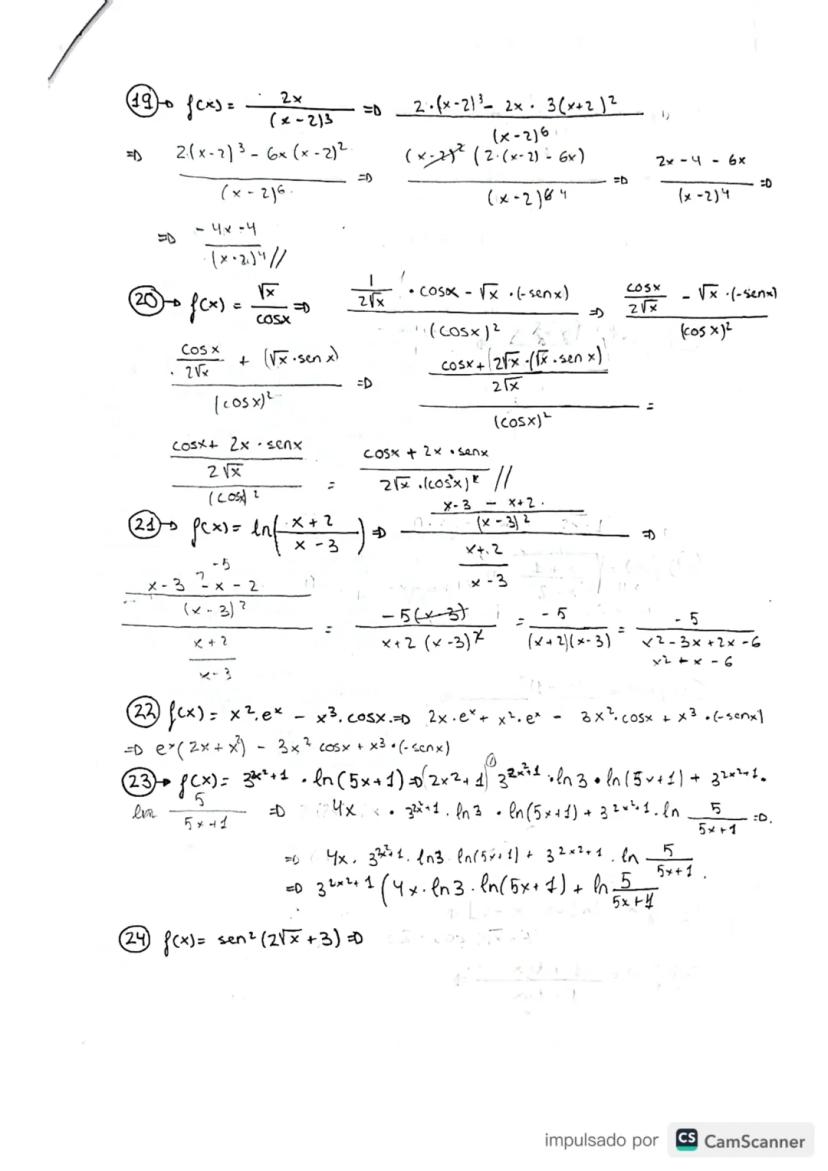 19 → f(x) = 2x / (x-2)³ ⇒ 2·(x-2)³ - 2x · 3(x+2)² / (x-2)⁶
⇒ 2(x-2)³ - 6x(x-2)² / (x-2)⁶ ⇒ (x-2)² (2·(x-2) - 6x) / (x-2)⁶ ⁴ ⇒ 2x - 4 - 6x / (x-2)⁴ ⇒
⇒ -4x-4 / (x-2)⁴ //
20 → f(x) = √x / cosx ⇒ 1/2√x · cosx - √x · (-senx) / (cosx)² ⇒ cosx/2√x - √x · (-senx) / (cosx)²
cosx/2√x + (√x · senx) / (cosx)² ⇒ cosx + (2√x · (√x · senx) / 2√x / (cosx)² =
cosx + 2x · senx / 2√x / (cosx)² = cosx + 2x · senx / 2√x · (cos²x) //
21 → f(x) = ln(x+2 / x-3) ⇒ x-3 - x+2 / (x-3)² / x+2 / x-3 ⇒
-5
x-3 - x - 2 / (x-3)² / x+2 / x-3 = -5(x-3) / x+2 (x-3)² = -5 / (x+2)(x-3) = -5 / x² - 3x + 2x - 6
x² + x - 6
22 f(x) = x² · eˣ - x³ · cosx ⇒ 2x · eˣ + x² · eˣ - 3x² · cosx + x³ · (-senx)
⇒ eˣ(2x + x²) - 3x² cosx + x³ · (-senx)
23 → f(x) = 3^2x²+1 · ln(5x+1) ⇒ (2x²+1)' 3^2x²+1 · ln3 · ln(5x+1) + 3^2x²+1 ·
ln 5 / 5x+1 ⇒ 4x · 3^2x²+1 · ln3 · ln(5x+1) + 3^2x²+1 · ln 5 / 5x+1 ⇒
⇒ 4x · 3^2x²+1 · ln3 · ln(5x+1) + 3^2x²+1 · ln 5 / 5x+1 ·
⇒ 3^2x²+1 (4x · ln3 · ln(5x+1) + ln 5 / 5x+1
24 f(x) = sen²(2√x + 3) ⇒
impulsado por CS CamScanner